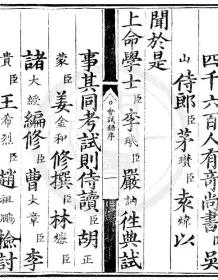 四千六百人有奇尚書臣吳
山侍郎臣茅瓚臣袁煒以
聞於是
上命學士臣李璣臣嚴訥往典試
會試錄序
事其同考試則侍讀臣胡正
蒙臣姜金和修撰臣林燫臣
諸大綬編修臣曹大章臣李
貴臣王希烈臣趙祖鵬檢討